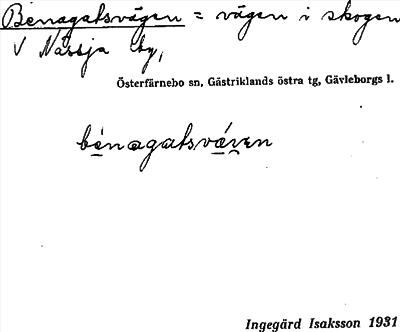 Benagatsvägen = vägen i skogen
V Nässja by,
Österfärnebo sn, Gästriklands östra tg, Gävleborgs l.
bénagatsvä́ven
Ingegärd Isaksson 1931